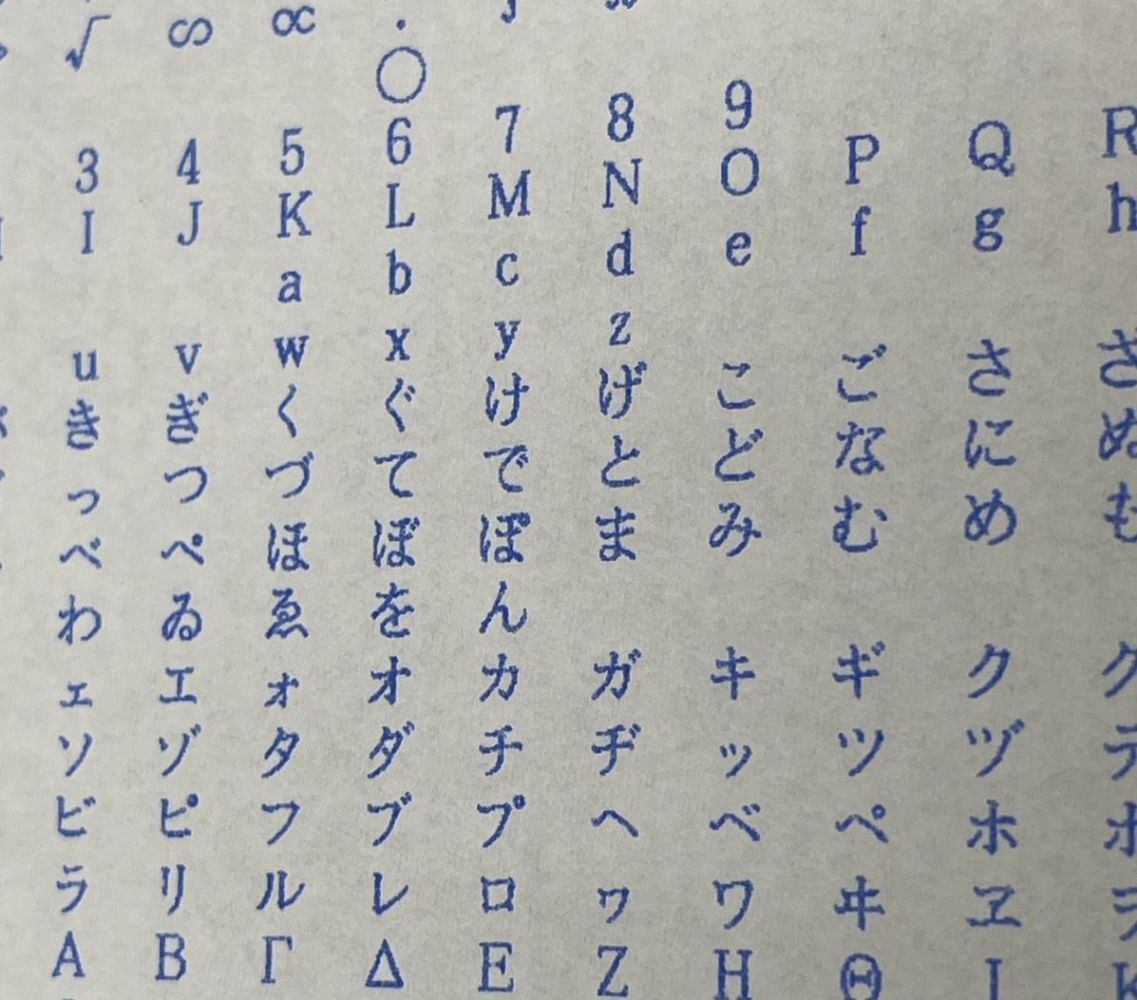 √ ∞ ∝ ∴
○
3 4 5 6 7 8 9
I J K L M N O P Q R
a b c d e f g h
u v w x y z
き ぎ く ぐ け げ こ ご さ ざ
っ つ づ て で と ど な に ぬ
べ ぺ ほ ぼ ぽ ま み む め も
わ ゐ ゑ を ん
ェ エ ォ オ カ ガ キ ギ ク グ
ソ ゾ タ ダ チ ヂ ッ ツ ヅ テ
ビ ピ フ ブ プ ヘ ベ ペ ホ ボ
ラ リ ル レ ロ ヮ ワ ヰ ヱ ヲ
Α Β Γ Δ Ε Ζ Η Θ Ι Κ